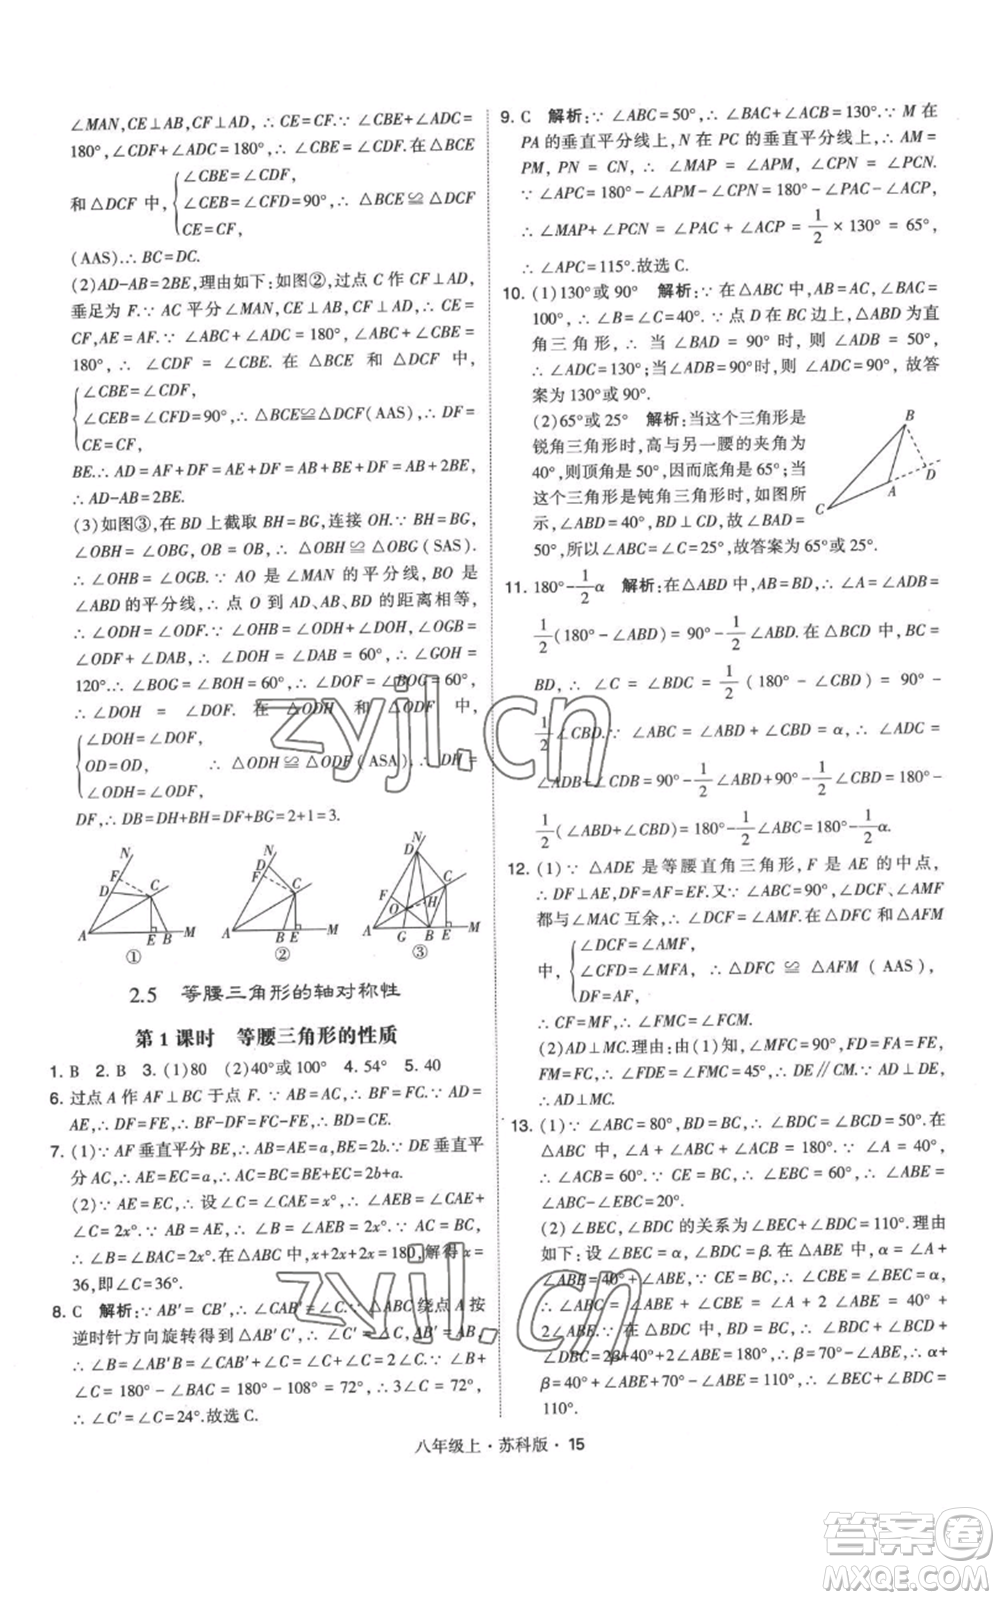 ∠MAN,CE⊥AB,CF⊥AD,∴CE=CF.∵∠CBE+∠ADC=
180°,∠CDF+∠ADC=180°,∴∠CBE=∠CDF.在△BCE
和△DCF中,{∠CBE=∠CDF,
∠CEB=∠CFD=90°,∴△BCE≌△DCF
CE=CF,
(AAS).∴BC=DC.
(2)AD-AB=2BE,理由如下:如图②,过点C作CF⊥AD,
垂足为F.∵AC平分∠MAN,CE⊥AB,CF⊥AD,∴CE=
CF,AE=AF.∵∠ABC+∠ADC=180°,∠ABC+∠CBE=
180°,∴∠CDF=∠CBE.在△BCE和△DCF中,
{∠CBE=∠CDF,
∠CEB=∠CFD=90°,∴△BCE≌△DCF(AAS),∴DF=
CE=CF,
BE.∴AD=AF+DF=AE+DF=AB+BE+DF=AB+2BE.
∴AD-AB=2BE.
(3)如图③,在BD上截取BH=BG,连接OH.∵BH=BG,
∠OBH=∠OBG,OB=OB,∴△OBH≌△OBG(SAS).
∴∠OHB=∠OGB.∵AO是∠MAN的平分线,BO是
∠ABD的平分线,∴点O到AD,AB,BD的距离相等,
∴∠ODH=∠ODF.∵∠OHB=∠ODH+∠DOH,∠OGB=
∠ODF+∠DAB,∴∠DOH=∠DAB=60°,∴∠GOH=
120°.∴∠BOG=∠BOH=60°,∴∠DOF=∠BOG=60°,
∴∠DOH=∠DOF.在△ODH和△ODF中,
{∠DOH=∠DOF,
OD=OD, ∴△ODH≌△ODF(ASA).∴DH=
∠ODH=∠ODF,
DF,∴DB=DH+BH=DF+BG=2+1=3.
N F D C A E B M ①
N F D C A B E M ②
N D F C O H A G B E M ③
2.5 等腰三角形的轴对称性
第1课时 等腰三角形的性质
1. B 2. B 3. (1)80 (2)40°或100° 4. 54° 5. 40
6. 过点A作AF⊥BC于点F.∵AB=AC,∴BF=FC.∵AD=
AE,∴DF=FE,∴BF-DF=FC-FE,∴BD=CE.
7. (1)∵AF垂直平分BE,∴AB=AE=a,BE=2b.∵DE垂直平
分AC,∴AE=EC=a,∴AC=BC=BE+EC=2b+a.
(2)∵AE=EC,∴设∠C=∠CAE=x°,∴∠AEB=∠CAE+
∠C=2x°.∵AB=AE,∴∠B=∠AEB=2x°.∵AC=BC,
∴∠B=∠BAC=2x°.在△ABC中,x+2x+2x=180,解得x=
36,即∠C=36°.
8. C 解析:∵AB′=CB′,∴∠CAB′=∠C.∵△ABC绕点A按
逆时针方向旋转得到△AB′C′,∴∠C′=∠C,AB=AB′,
∴∠B=∠AB′B=∠CAB′+∠C=∠C+∠C=2∠C.∵∠B+
∠C=180°-∠BAC=180°-108°=72°,∴3∠C=72°,
∴∠C′=∠C=24°.故选C.
9. C 解析:∵∠ABC=50°,∴∠BAC+∠ACB=130°.∵M在
PA的垂直平分线上,N在PC的垂直平分线上,∴AM=
PM,PN=CN,∴∠MAP=∠APM,∠CPN=∠PCN.
∵∠APC=180°-∠APM-∠CPN=180°-∠PAC-∠ACP,
∴∠MAP+∠PCN=∠PAC+∠ACP=1/2×130°=65°,
∴∠APC=115°.故选C.
10. (1)130°或90° 解析:∵在△ABC中,AB=AC,∠BAC=
100°,∴∠B=∠C=40°.∵点D在BC边上,△ABD为直
角三角形,∴当∠BAD=90°时,则∠ADB=50°,
∴∠ADC=130°;当∠ADB=90°时,则∠ADC=90°.故答
案为130°或90°.
(2)65°或25° 解析:当这个三角形是
锐角三角形时,高与另一腰的夹角为
40°,则顶角是50°,因而底角是65°;当
这个三角形是钝角三角形时,如图所
示,∠ABD=40°,BD⊥CD,故∠BAD=
50°,所以∠C=∠ABC=25°,故答案为65°或25°.
B A D C
11. 180°-1/2α 解析:在△ABD中,AB=BD,∴∠A=∠ADB=
1/2(180°-∠ABD)=90°-1/2∠ABD.在△BCD中,BC=
BD,∴∠C=∠BDC=1/2(180°-∠CBD)=90°-
1/2∠CBD.∵∠ABC=∠ABD+∠CBD=α,∴∠ADC=
∠ADB+∠CDB=90°-1/2∠ABD+90°-1/2∠CBD=180°-
1/2(∠ABD+∠CBD)=180°-1/2∠ABC=180°-1/2α.
12. (1)∵△ADE是等腰直角三角形,F是AE的中点,
∴DF⊥AE,DF=AF=EF.又∵∠ABC=90°,∠DCF、∠AMF
都与∠MAC互余,∴∠DCF=∠AMF.在△DFC和△AFM
中,{∠DCF=∠AMF,
∠MFA=∠CFD, ∴△DFC≌△AFM(AAS).
DF=AF,
∴CF=MF,∴∠FMC=∠FCM.
(2)AD⊥MC.理由:由(1)知,∠MFC=90°,FD=FA=FE,
FM=FC,∴∠FDE=∠FMC=45°,∴DE∥CM,∵AD⊥DE,
∴AD⊥MC.
13. (1)∵∠ABC=80°,BD=BC,∴∠BDC=∠BCD=50°.在
△ABC中,∠A+∠ABC+∠ACB=180°.∵∠A=40°,
∴∠ACB=60°.∵CE=BC,∴∠EBC=60°.∴∠ABE=
∠ABC-∠EBC=20°.
(2)∠BEC,∠BDC的关系为∠BEC+∠BDC=110°.理由
如下:设∠BEC=α,∠BDC=β.在△ABE中,α=∠A+
∠ABE=40°+∠ABE.∵CE=BC,∴∠CBE=∠BEC=α,
∴∠ABC=∠ABE+∠CBE=∠A+2∠ABE=40°+
2∠ABE.在△BDC中,BD=BC,∴∠BDC+∠BCD+
∠DBC=2β+40°+2∠ABE=180°,∴β=70°-∠ABE,∴α+
β=40°+∠ABE+70°-∠ABE=110°,∴∠BEC+
∠BDC=110°.
八年级上·苏科版·15
zyjl.cn
zyjl.cn
答案圈
MXQE.COM